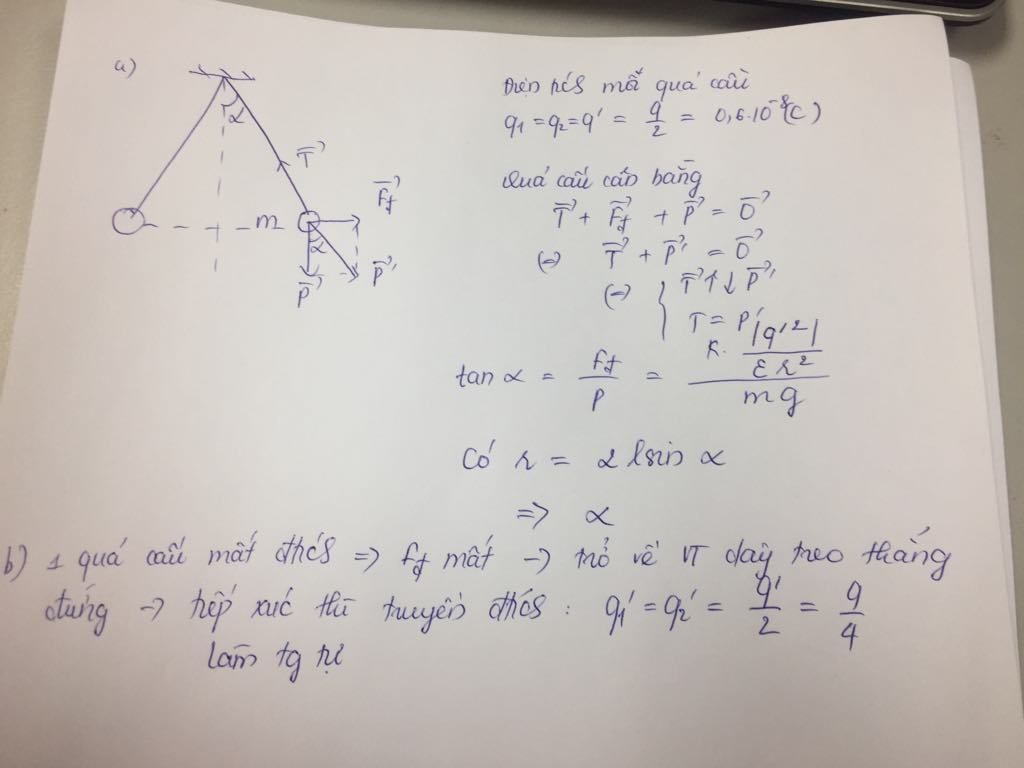 a)
α
T⃗
F⃗đ
m
α
P⃗
P⃗'
Điện tích mỗi quả cầu
q₁ = q₂ = q' = q/2 = 0,6.10⁻⁸(C)
Quả cầu cân bằng
T⃗ + F⃗đ + P⃗ = 0⃗
(=) T⃗ + P⃗' = 0⃗
(=) { T⃗ ↑↓ P⃗'
T = P'
tan α = Fđ/P = (k.|q'²|/(εr²))/(mg)
Có r = 2lsin α
=> α
b) 1 quả cầu mất đtích => Fđ mất -> trở về VT dây treo thẳng
đứng -> tiếp xúc thì truyền đtích : q₁' = q₂' = q'/2 = q/4
làm tg tự